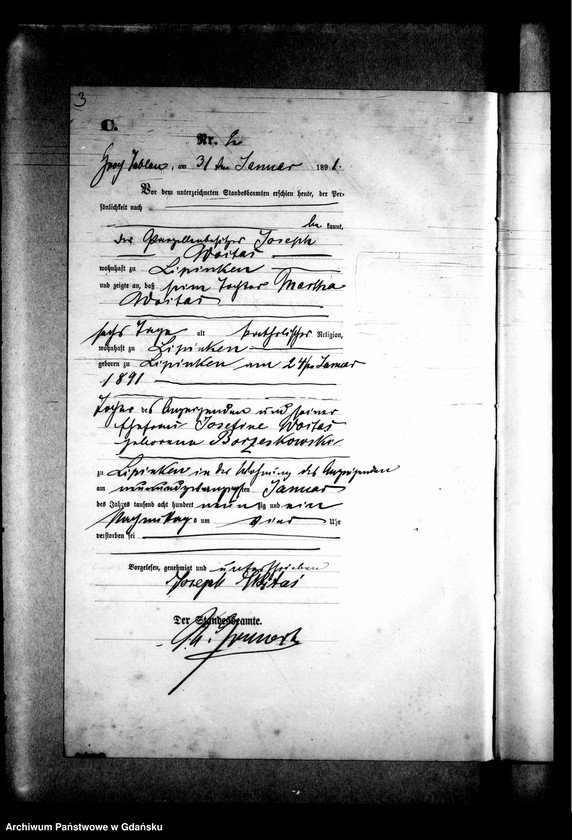 3
C.
Nr. 2
Groß Jablau, am 31ten Januar 1891.
Vor dem unterzeichneten Standesbeamten erschien heute, der Per-
sönlichkeit nach
be kannt,
der Parzellenbesitzer Joseph
Woitas
wohnhaft zu Lipinken
und zeigte an, daß seine Tochter Martha
Woitas
sechs Tage alt katholischer Religion,
wohnhaft zu Lipinken
geboren zu Lipinken am 24ten Januar
1891
Tochter des Anzeigenden und seiner
Ehefrau Josefine Woitas
geborene Borzeskowski
zu Lipinken in der Wohnung des Anzeigenden
am neunundzwanzigsten Januar
des Jahres tausend acht hundert neun zig und eins
Nachmittags um vier Uhr
verstorben sei
Vorgelesen, genehmigt und unterschrieben
Joseph Woitas
Der Standesbeamte.
Archiwum Państwowe w Gdańsku